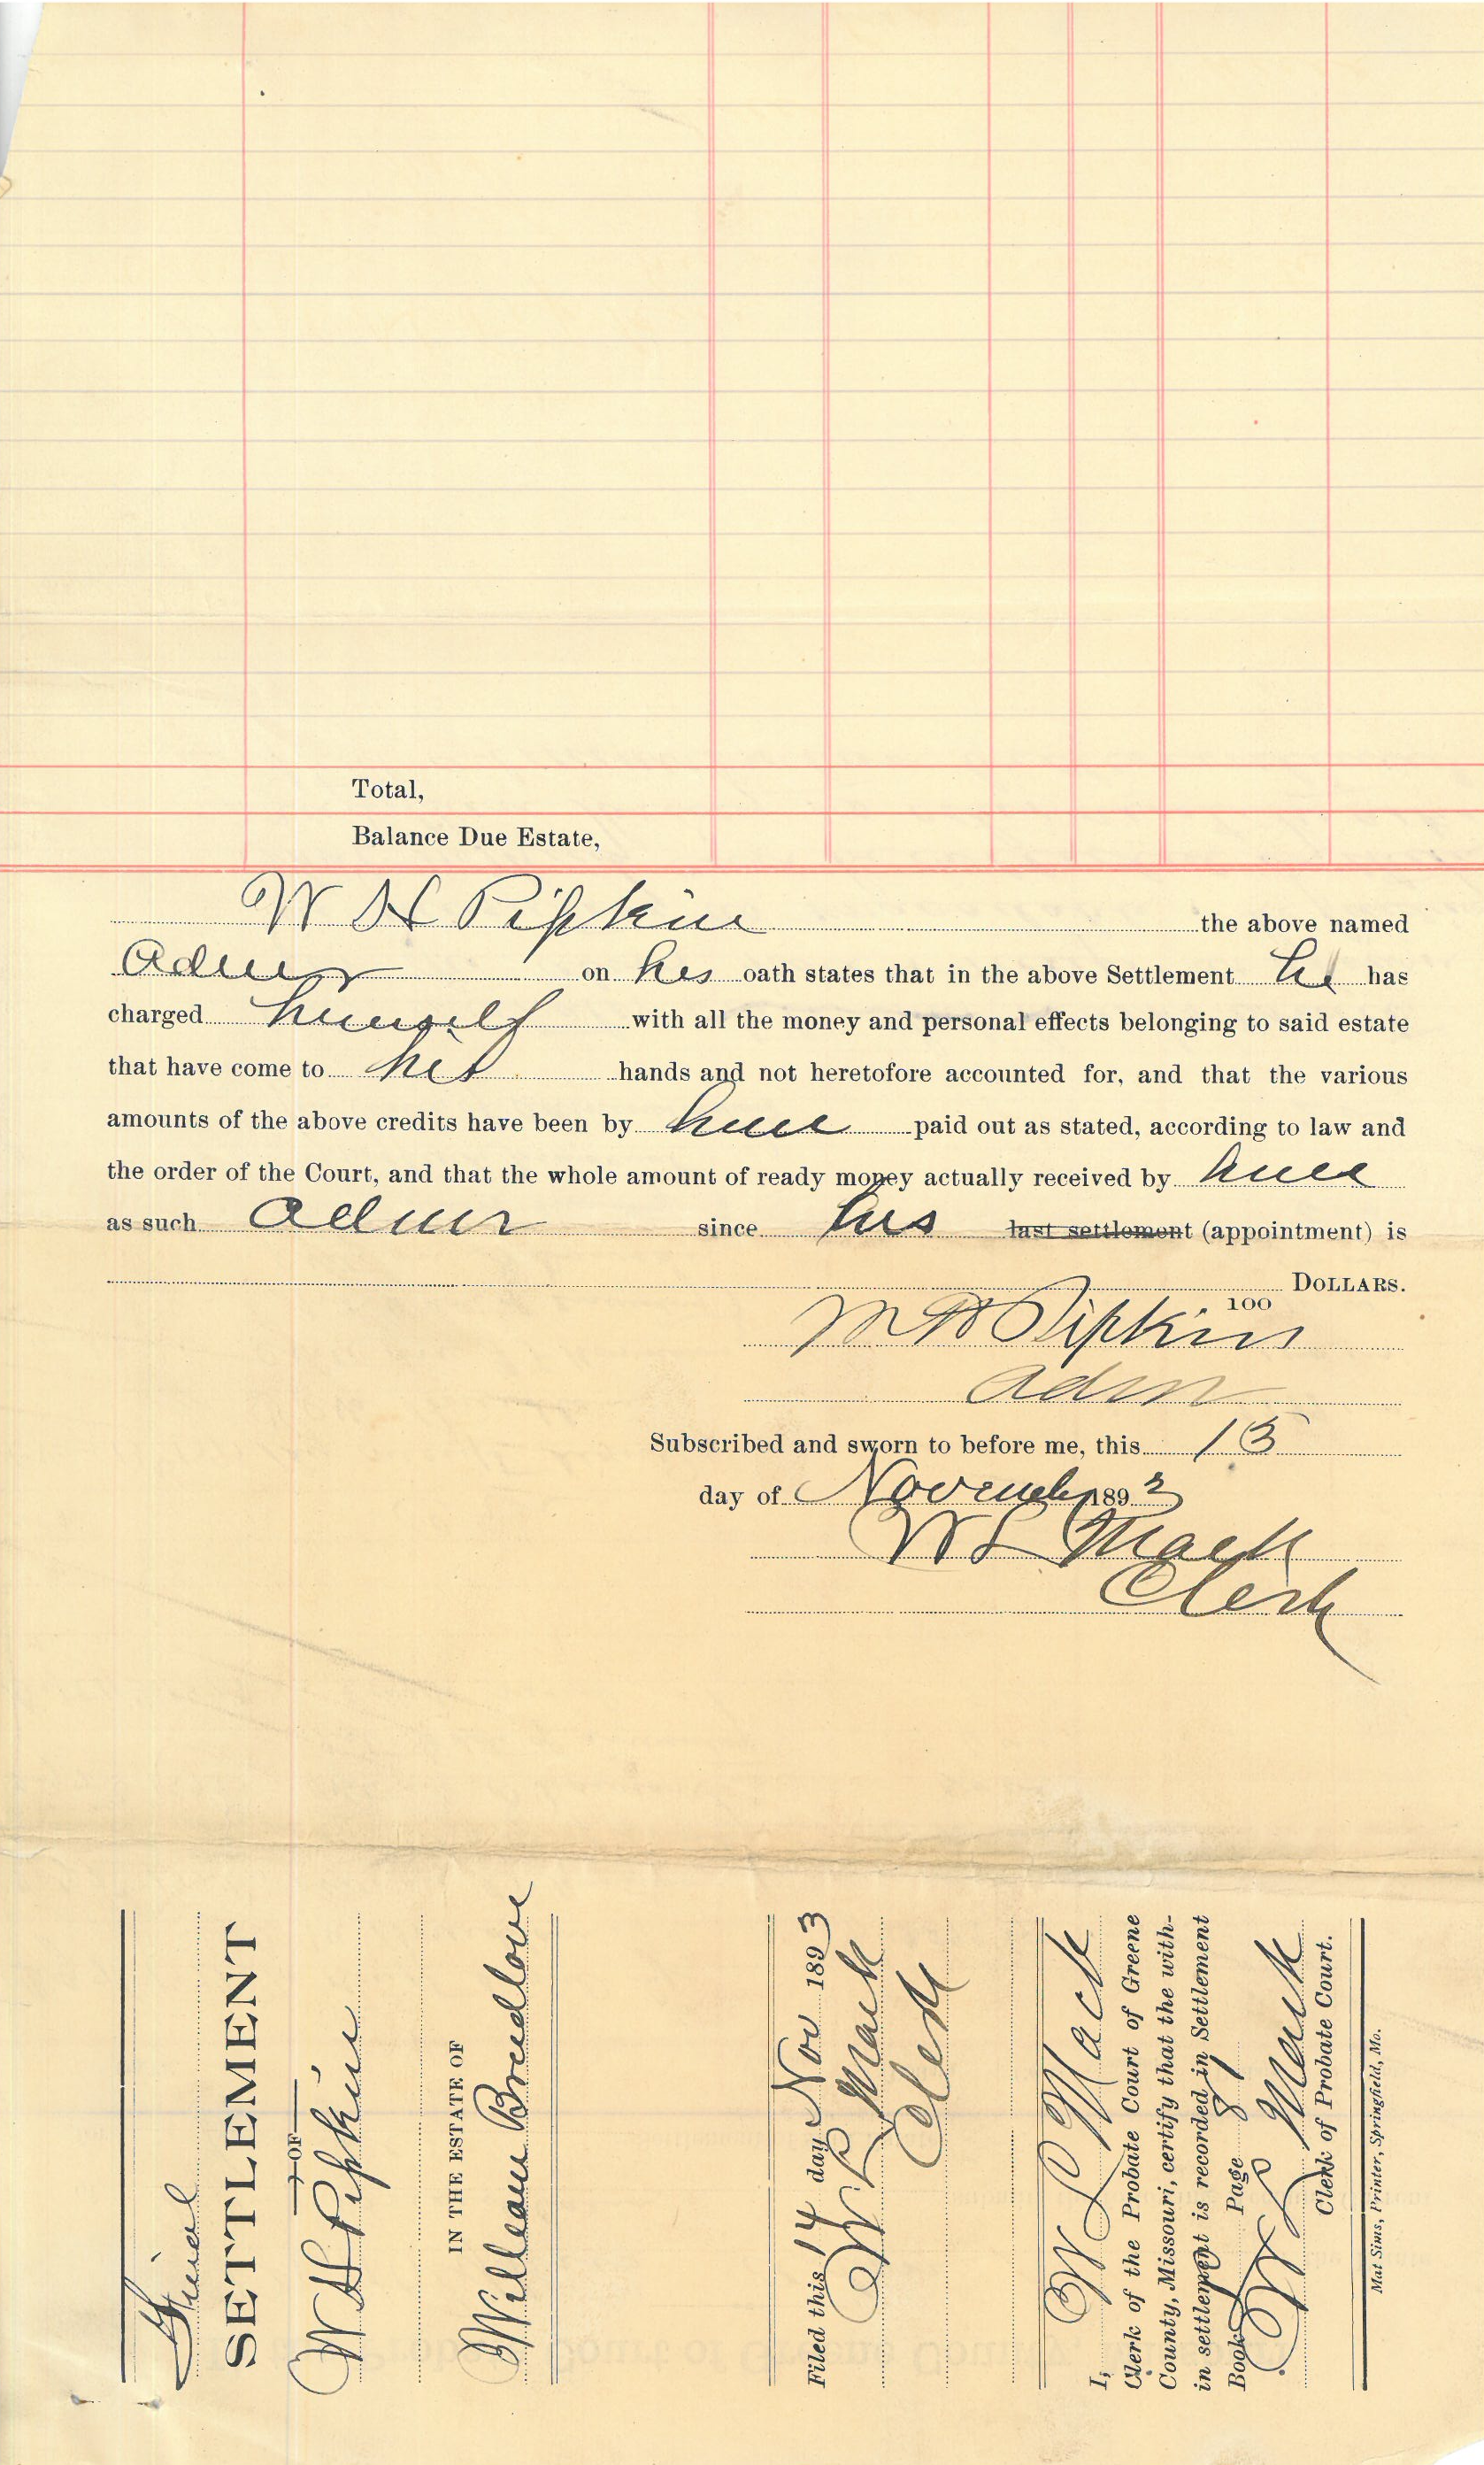 Total,
Balance Due Estate,
W H Pipkin the above named
Admr on his oath states that in the above Settlement he has
charged himself with all the money and personal effects belonging to said estate
that have come to his hands and not heretofore accounted for, and that the various
amounts of the above credits have been by him paid out as stated, according to law and
the order of the Court, and that the whole amount of ready money actually received by him
as such admr since his last settlement (appointment) is
DOLLARS.
100
W H Pipkin
adm
Subscribed and sworn to before me, this 13
day of November 1893
W L Mack
Clerk
Final
SETTLEMENT
OF
W H Pipkin
IN THE ESTATE OF
William Breedlove
Filed this 14 day Nov 1893
W L Mack
Clerk
I, W L Mack
Clerk of the Probate Court of Greene
County, Missouri, certify that the with-
in settlement is recorded in Settlement
Book Page 81
W L Mack
Clerk of Probate Court.
Mat Sims, Printer, Springfield, Mo.